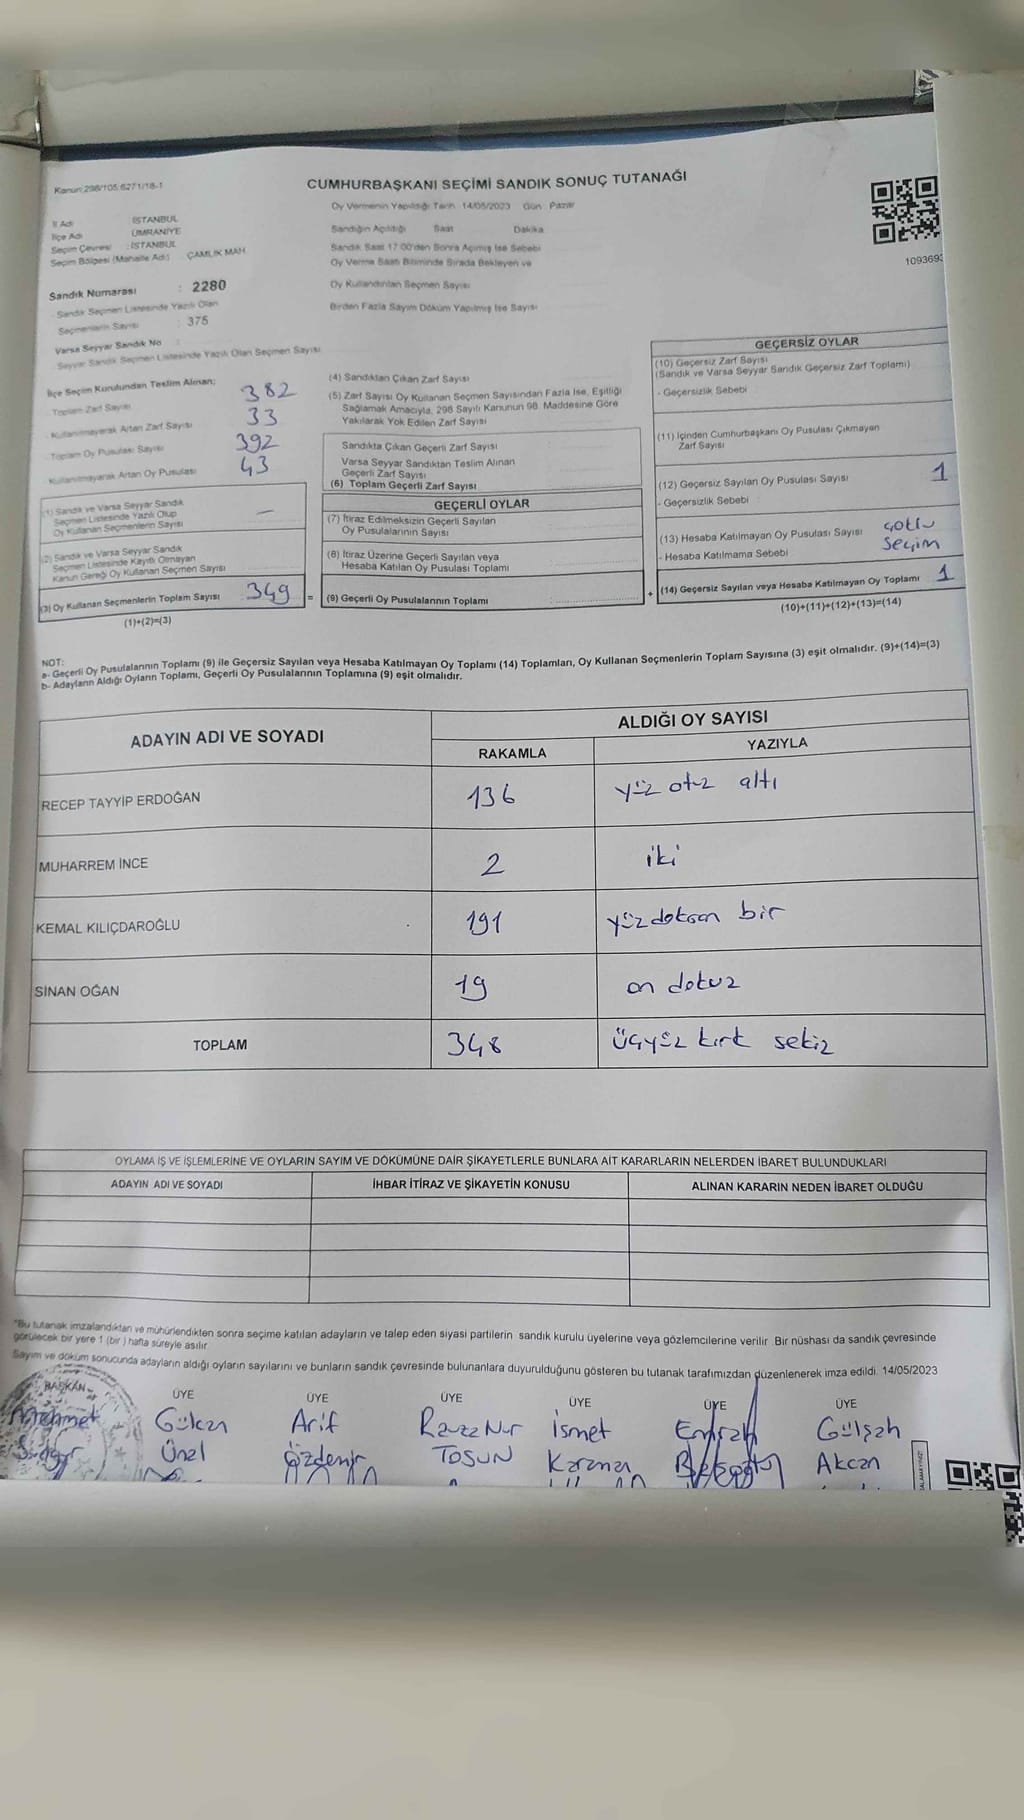 Kanun:298/105;6271/18-1
CUMHURBAŞKANI SEÇİMİ SANDIK SONUÇ TUTANAĞI
Oy Vermenin Yapıldığı Tarih 14/05/2023 Gün : Pazar
İl Adı : İSTANBUL
İlçe Adı : ÜMRANİYE
Seçim Çevresi : İSTANBUL
Seçim Bölgesi (Mahalle Adı) : ÇAMLIK MAH.
Sandık Numarası : 2280
Sandık Seçmen Listesinde Yazılı Olan
Seçmenlerin Sayısı : 375
Varsa Seyyar Sandık No :
Seyyar Sandık Seçmen Listesinde Yazılı Olan Seçmen Sayısı
Sandığın Açıldığı Saat Dakika
Sandık Saat 17:00'den Sonra Açılmış İse Sebebi
Oy Verme Saati Bitiminde Sırada Bekleyen ve
Oy Kullandırılan Seçmen Sayısı
Birden Fazla Sayım Döküm Yapılmış İse Sayısı
1093693
İlçe Seçim Kurulundan Teslim Alınan;
Toplam Zarf Sayısı 382
Kullanılmayarak Artan Zarf Sayısı 33
Toplam Oy Pusulası Sayısı 392
Kullanılmayarak Artan Oy Pusulası 43
(1) Sandık ve Varsa Seyyar Sandık
Seçmen Listesinde Yazılı Olup
Oy Kullanan Seçmenlerin Sayısı —
(2) Sandık ve Varsa Seyyar Sandık
Seçmen Listesinde Kayıtlı Olmayan
Kanun Gereği Oy Kullanan Seçmen Sayısı
(3) Oy Kullanan Seçmenlerin Toplam Sayısı 349 =
(1)+(2)=(3)
(4) Sandıktan Çıkan Zarf Sayısı
(5) Zarf Sayısı Oy Kullanan Seçmen Sayısından Fazla İse, Eşitliği
Sağlamak Amacıyla, 298 Sayılı Kanunun 98. Maddesine Göre
Yakılarak Yok Edilen Zarf Sayısı
Sandıkta Çıkan Geçerli Zarf Sayısı
Varsa Seyyar Sandıktan Teslim Alınan
Geçerli Zarf Sayısı
(6) Toplam Geçerli Zarf Sayısı
GEÇERLİ OYLAR
(7) İtiraz Edilmeksizin Geçerli Sayılan
Oy Pusulalarının Sayısı
(8) İtiraz Üzerine Geçerli Sayılan veya
Hesaba Katılan Oy Pusulası Toplamı
(9) Geçerli Oy Pusulalarının Toplamı +
GEÇERSİZ OYLAR
(10) Geçersiz Zarf Sayısı
(Sandık ve Varsa Seyyar Sandık Geçersiz Zarf Toplamı)
- Geçersizlik Sebebi
(11) İçinden Cumhurbaşkanı Oy Pusulası Çıkmayan
Zarf Sayısı
(12) Geçersiz Sayılan Oy Pusulası Sayısı 1
- Geçersizlik Sebebi :
(13) Hesaba Katılmayan Oy Pusulası Sayısı çoklu
- Hesaba Katılmama Sebebi seçim
(14) Geçersiz Sayılan veya Hesaba Katılmayan Oy Toplamı 1
(10)+(11)+(12)+(13)=(14)
NOT:
a- Geçerli Oy Pusulalarının Toplamı (9) ile Geçersiz Sayılan veya Hesaba Katılmayan Oy Toplamı (14) Toplamları, Oy Kullanan Seçmenlerin Toplam Sayısına (3) eşit olmalıdır. (9)+(14)=(3)
b- Adayların Aldığı Oyların Toplamı, Geçerli Oy Pusulalarının Toplamına (9) eşit olmalıdır.
ADAYIN ADI VE SOYADI ALDIĞI OY SAYISI
RAKAMLA YAZIYLA
RECEP TAYYİP ERDOĞAN 136 yüz otuz altı
MUHARREM İNCE 2 iki
KEMAL KILIÇDAROĞLU 191 yüzdoksan bir
SİNAN OĞAN 19 on dokuz
TOPLAM 348 üçyüz kırk sekiz
OYLAMA İŞ VE İŞLEMLERİNE VE OYLARIN SAYIM VE DÖKÜMÜNE DAİR ŞİKAYETLERLE BUNLARA AİT KARARLARIN NELERDEN İBARET BULUNDUKLARI
ADAYIN ADI VE SOYADI İHBAR İTİRAZ VE ŞİKAYETİN KONUSU ALINAN KARARIN NEDEN İBARET OLDUĞU
*Bu tutanak imzalandıktan ve mühürlendikten sonra seçime katılan adayların ve talep eden siyasi partilerin sandık kurulu üyelerine veya gözlemcilerine verilir. Bir nüshası da sandık çevresinde
görülecek bir yere 1 (bir ) hafta süreyle asılır.
Sayım ve döküm sonucunda adayların aldığı oyların sayılarını ve bunların sandık çevresinde bulunanlara duyurulduğunu gösteren bu tutanak tarafımızdan düzenlenerek imza edildi. 14/05/2023
BAŞKAN ÜYE ÜYE ÜYE ÜYE ÜYE ÜYE
Mehmet Gülcan Arif Ravza Nur İsmet Emrah Gülşah
Ünal Özdemir TOSUN Karaman Akcan